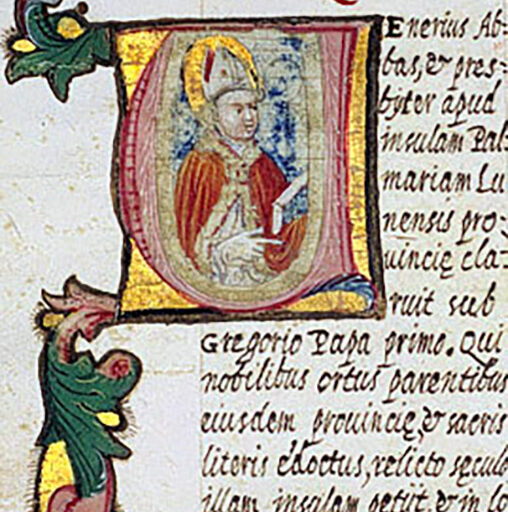 Venerius Ab-
bas, & pres-
byter apud
insulam Pal-
mariam Lu
nensis pro-
uincię cla-
ruit sub
Gregorio Papa primo. Qui
nobilibus ortus parentibus
eiusdem prouincię, & sacris
literis edoctus, relicto sęculo
illam insulam petijt, & in lo